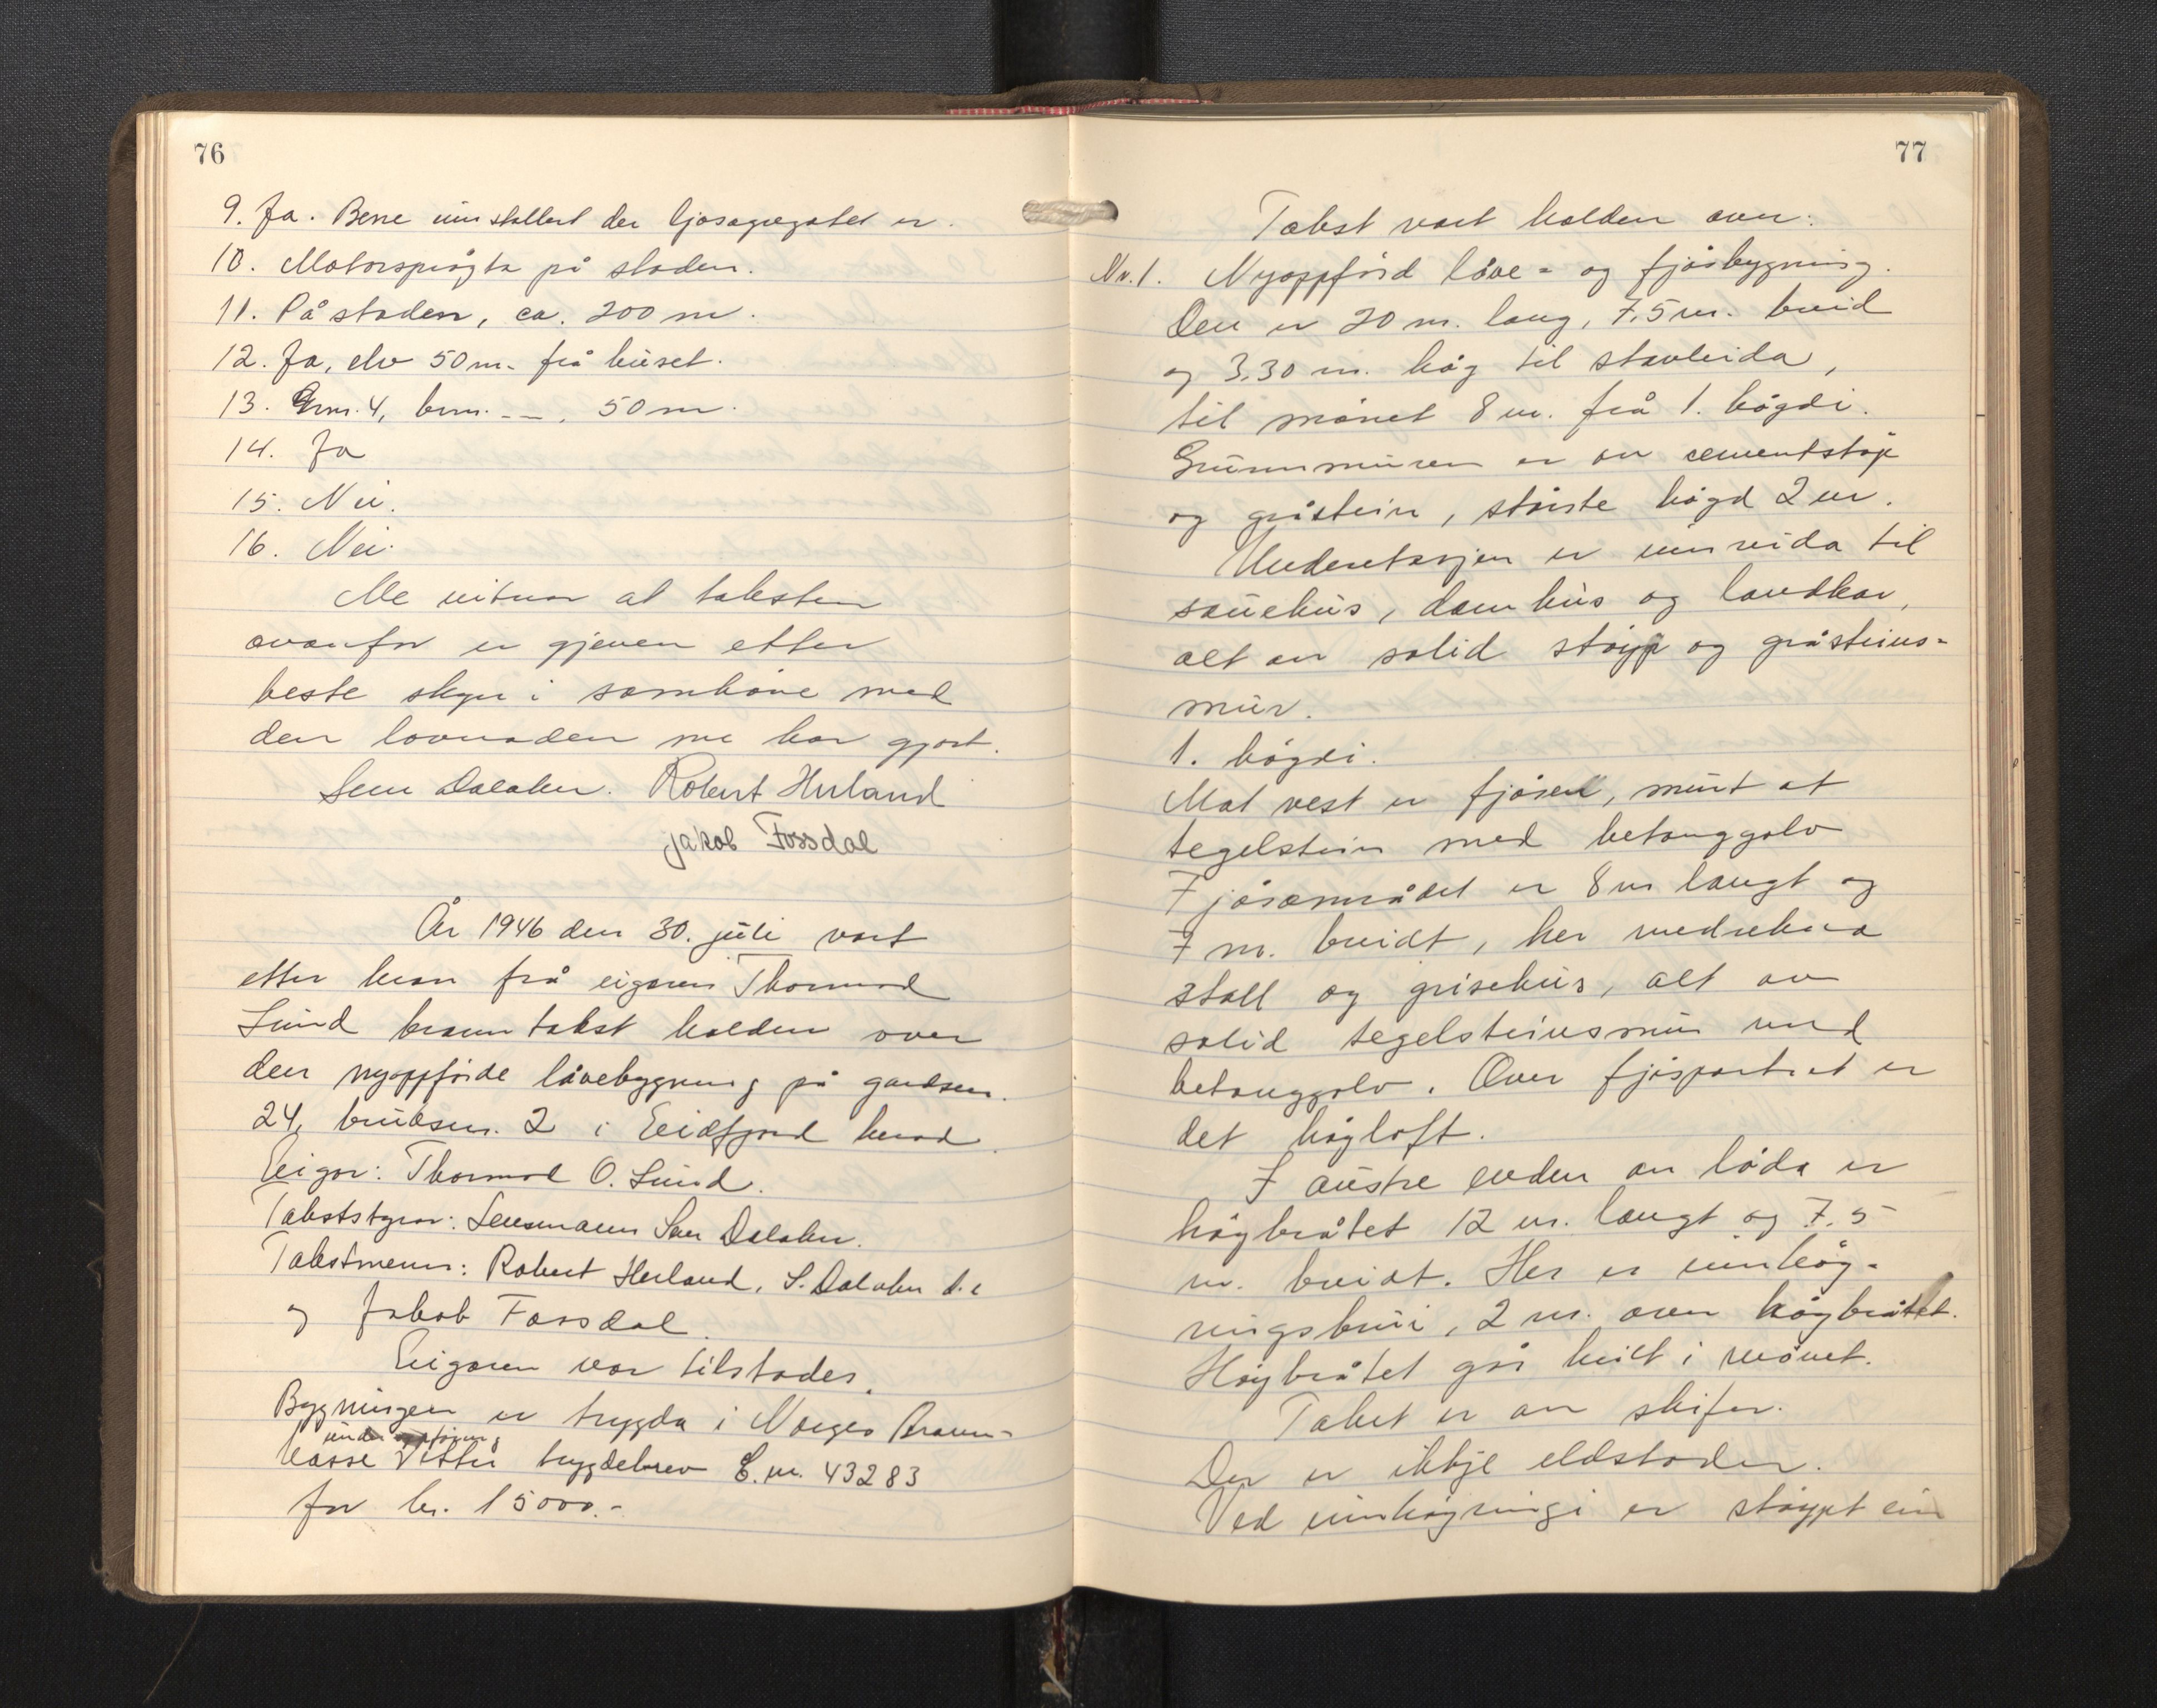 76
9. Ja. Berre innstallert der ljosagregatet er.
10. Motorsprøyta på staden.
11. På staden, ca. 200 m.
12. Ja, elv 50 m. frå huset.
13. Gnr. 4, bnr. -- . 50 m.
14. Ja
15. Nei.
16. Nei.
Me vitnar at taksten
ovanfor er gjeven etter
beste skyn i samhøve med
den lovnaden me har gjort.
Sem Dalaker. Robert Herland
Jakob Fossdal
År 1946 den 30. juli vart
etter krav frå eigaren Thormod
Lund branntakst halden over
den nyoppførde låvebygning på gardsnr.
24, bruksnr. 2 i Eidfjord herad.
Eigar: Thormod O. Lund.
Takststyrar: Lensmann Sem Dalaker.
Takstmenn: Robert Herland, S. Dalaker d.e
og Jakob Fossdal.
Eigaren var tilstades.
Bygningen er trygda i Norges Brann-
under oppføring
kasse trygdebrev L.nr. 43283
for kr. 15000.-
77
Takst vart halden over:
Nr. 1. Nyoppførd låve- og fjøsbygning.
Den er 20 m. lang, 7,5 m. breid
og 3,30 m. høg til stavleida,
til mønet 8 m. frå 1. høgdi.
Grunnmuren er av cementstøp
og gråstein, største høgd 2 m.
Underetasjen er innreida til
sauehus, dam hus og landkar,
alt av solid støyp og gråsteins-
mur.
1. høgdi.
Mot vest er fjøsen, murt at
tegelstein med betonggolv
Fjøsområdet er 8 m langt og
7 m. breidt, her medrekna
stall og grisehus, alt av
solid tegelsteinsmur med
betonggolv. Over fjøspartiet er
det høyloft.
I austre enden av løda er
høybråtet 12 m. langt og 7.5
m. breidt. Her er innkøy-
ringsbrui, 2 m. over høybråtet.
Høybråtet går heilt i mønet.
Taket er av skifer.
Der er ikkje eldstader.
Ved innkøyringi er støypt ein